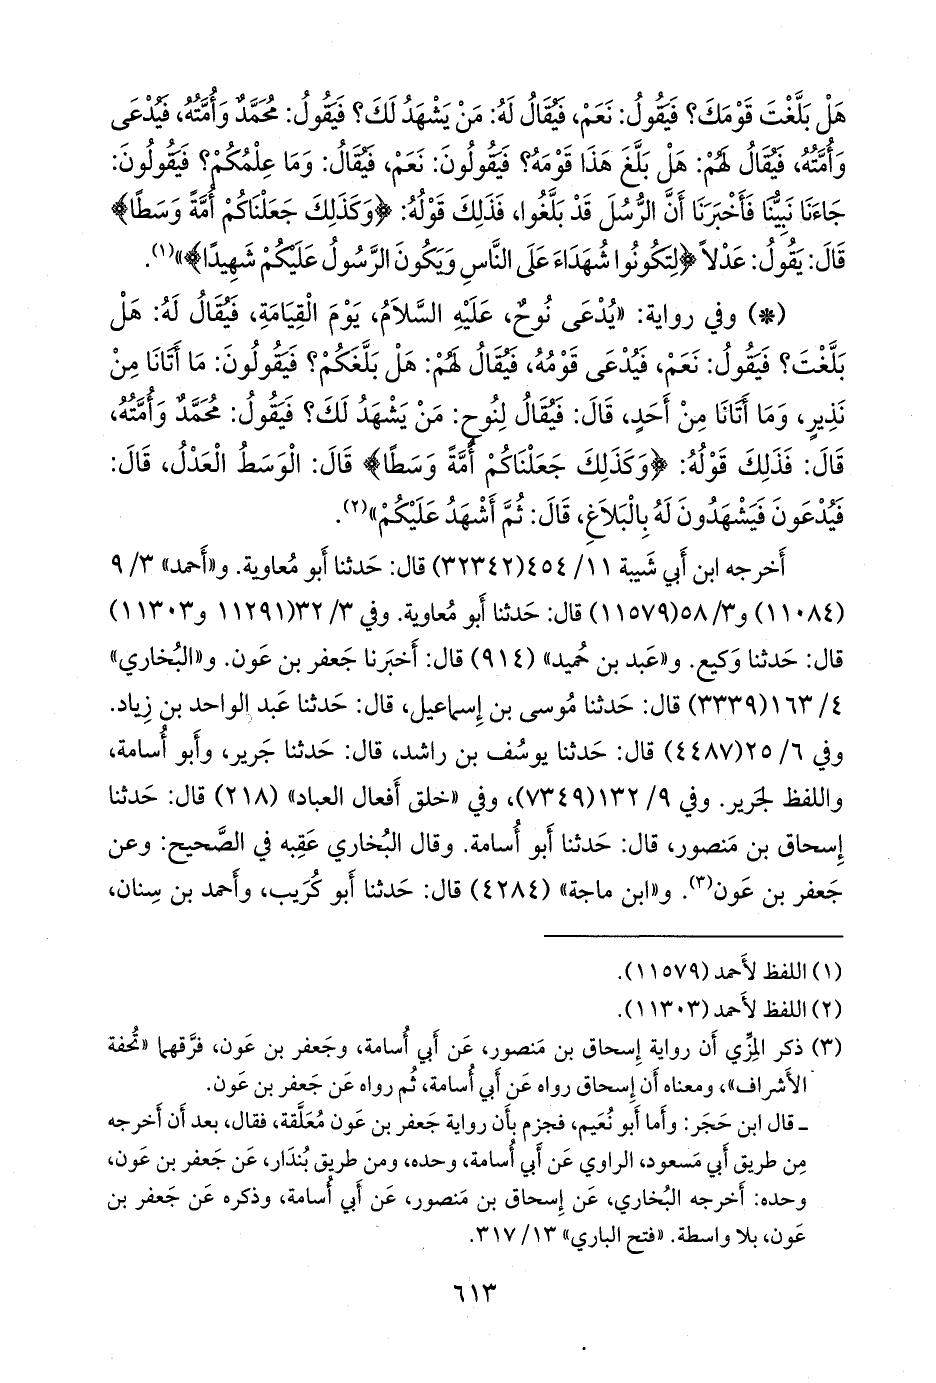 هَلْ بَلَّغْتَ قَوْمَكَ؟ فَيَقُولُ: نَعَمْ، فَيُقَالُ لَهُ: مَنْ يَشْهَدُ لَكَ؟ فَيَقُولُ: مُحَمَّدٌ وَأُمَّتُهُ، فَيُدْعَى
وَأُمَّتُهُ، فَيُقَالُ لَهُمْ: هَلْ بَلَّغَ هَذَا قَوْمَهُ؟ فَيَقُولُونَ: نَعَمْ، فَيُقَالُ: وَمَا عِلْمُكُمْ؟ فَيَقُولُونَ:
جَاءَنَا نَبِيُّنَا فَأَخْبَرَنَا أَنَّ الرُّسُلَ قَدْ بَلَّغُوا، فَذَلِكَ قَوْلُهُ: ﴿وَكَذَلِكَ جَعَلْنَاكُمْ أُمَّةً وَسَطًا﴾
قَالَ: يَقُولُ: عَدْلاً ﴿لِتَكُونُوا شُهَدَاءَ عَلَى النَّاسِ وَيَكُونَ الرَّسُولُ عَلَيْكُمْ شَهِيدًا﴾»(١).
(*) وفي رواية: «يُدْعَى نُوحٌ، عَلَيْهِ السَّلاَمُ، يَوْمَ الْقِيَامَةِ، فَيُقَالُ لَهُ: هَلْ
بَلَّغْتَ؟ فَيَقُولُ: نَعَمْ، فَيُدْعَى قَوْمُهُ، فَيُقَالُ لَهُمْ: هَلْ بَلَّغَكُمْ؟ فَيَقُولُونَ: مَا أَتَانَا مِنْ
نَذِيرٍ، وَمَا أَتَانَا مِنْ أَحَدٍ، قَالَ: فَيُقَالُ لِنُوحٍ: مَنْ يَشْهَدُ لَكَ؟ فَيَقُولُ: مُحَمَّدٌ وَأُمَّتُهُ،
قَالَ: فَذَلِكَ قَوْلُهُ: ﴿وَكَذَلِكَ جَعَلْنَاكُمْ أُمَّةً وَسَطًا﴾ قَالَ: الْوَسَطُ الْعَدْلُ، قَالَ:
فَيُدْعَونَ فَيَشْهَدُونَ لَهُ بِالْبَلاَغِ، قَالَ: ثُمَّ أَشْهَدُ عَلَيْكُمْ»(٢).
أَخرجه ابن أَبي شَيبة ١١/ ٤٥٤(٣٢٣٤٢) قال: حَدثنا أَبو مُعاوية. و«أَحمد» ٣/ ٩
(١١٠٨٤) و٣/ ٥٨(١١٥٧٩) قال: حَدثنا أَبو مُعاوية. وفي ٣/ ٣٢(١١٢٩١ و١١٣٠٣)
قال: حَدثنا وَكيع. و«عَبد بن حُميد» (٩١٤) قال: أَخبَرنا جَعفر بن عَون. و«البُخاري»
٤/ ١٦٣(٣٣٣٩) قال: حَدثنا مُوسى بن إِسماعيل، قال: حَدثنا عَبد الواحد بن زِياد.
وفي ٦/ ٢٥(٤٤٨٧) قال: حَدثنا يوسُف بن راشد، قال: حَدثنا جَرير، وأَبو أُسامة،
واللفظ لجَرير. وفي ٩/ ١٣٢(٧٣٤٩)، وفي «خلق أَفعال العباد» (٢١٨) قال: حَدثنا
إِسحاق بن مَنصور، قال: حَدثنا أَبو أُسامة. وقال البُخاري عَقِبه في الصَّحيح: وعن
جَعفر بن عَون(٣). و«ابن ماجة» (٤٢٨٤) قال: حَدثنا أَبو كُرَيب، وأَحمد بن سِنان،
(١) اللفظ لأَحمد (١١٥٧٩).
(٢) اللفظ لأَحمد (١١٣٠٣).
(٣) ذكر المِزِّي أَن رواية إِسحاق بن مَنصور، عَن أَبي أُسامة، وجَعفر بن عَون، فرَّقهما «تُحفة
الأَشراف»، ومعناه أَن إِسحاق رواه عَن أَبي أُسامة، ثُم رواه عَن جَعفر بن عَون.
ـ قال ابن حَجَر: وأَما أَبو نُعَيم، فجزم بأَن رواية جَعفر بن عَون مُعلَّقة، فقال، بعد أَن أَخرجه
مِن طريق أَبي مَسعود، الراوي عَن أَبي أُسامة، وحده، ومن طريق بُندَار، عَن جَعفر بن عَون،
وحده: أَخرجه البُخاري، عَن إِسحاق بن مَنصور، عَن أَبي أُسامة، وذكره عَن جَعفر بن
عَون، بلا واسطة. «فتح الباري» ١٣/ ٣١٧.
٦١٣